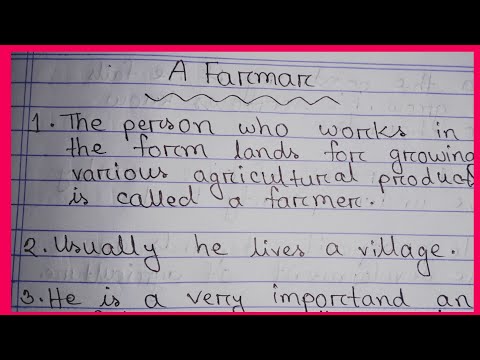 A Farmar
1. The person who works in
the form lands for growing
various agricultural product
is called a farmer.
2. Usually he lives a village.
3. He is a very importand an